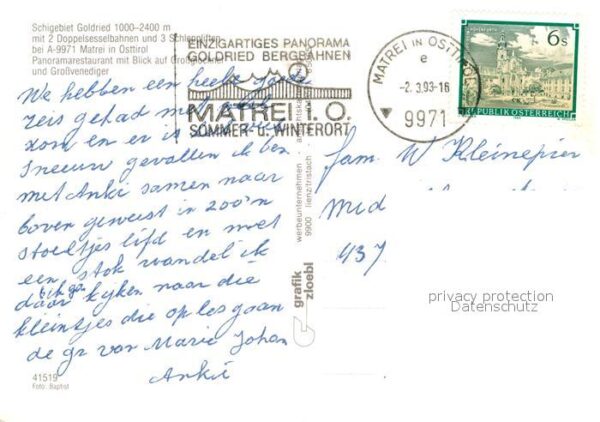 Schigebiet Goldried 1000–2400 m
mit 2 Doppelsesselbahnen und 3 Schleppliften
bei A-9971 Matrei in Osttirol
Panoramarestaurant mit Blick auf Großglockner
und Großvenediger
EINZIGARTIGES PANORAMA
GOLDRIED BERGBAHNEN
MATREI i. O.
SOMMER- u. WINTERORT
MATREI IN OSTTIROL
e
-2.3.93-16
9971
6 S
REPUBLIK ÖSTERREICH
We hebben een heele goede
reis gehad met
zon en er is
sneeuw gevallen ik ben
met Anki samen naar
boven geweest in zoo'n
stoeltjes lift en met
een stok wandel ik
ik ga
daar kijken naar die
kleintjes die op les gaan
de gr van Marie Johan
Anki
fam W Kleinepier
Mid
437
werbeunternehmen
9900 lienz/tristach
grafik
zloebl
privacy protection
Datenschutz
41519
Foto: Baptist